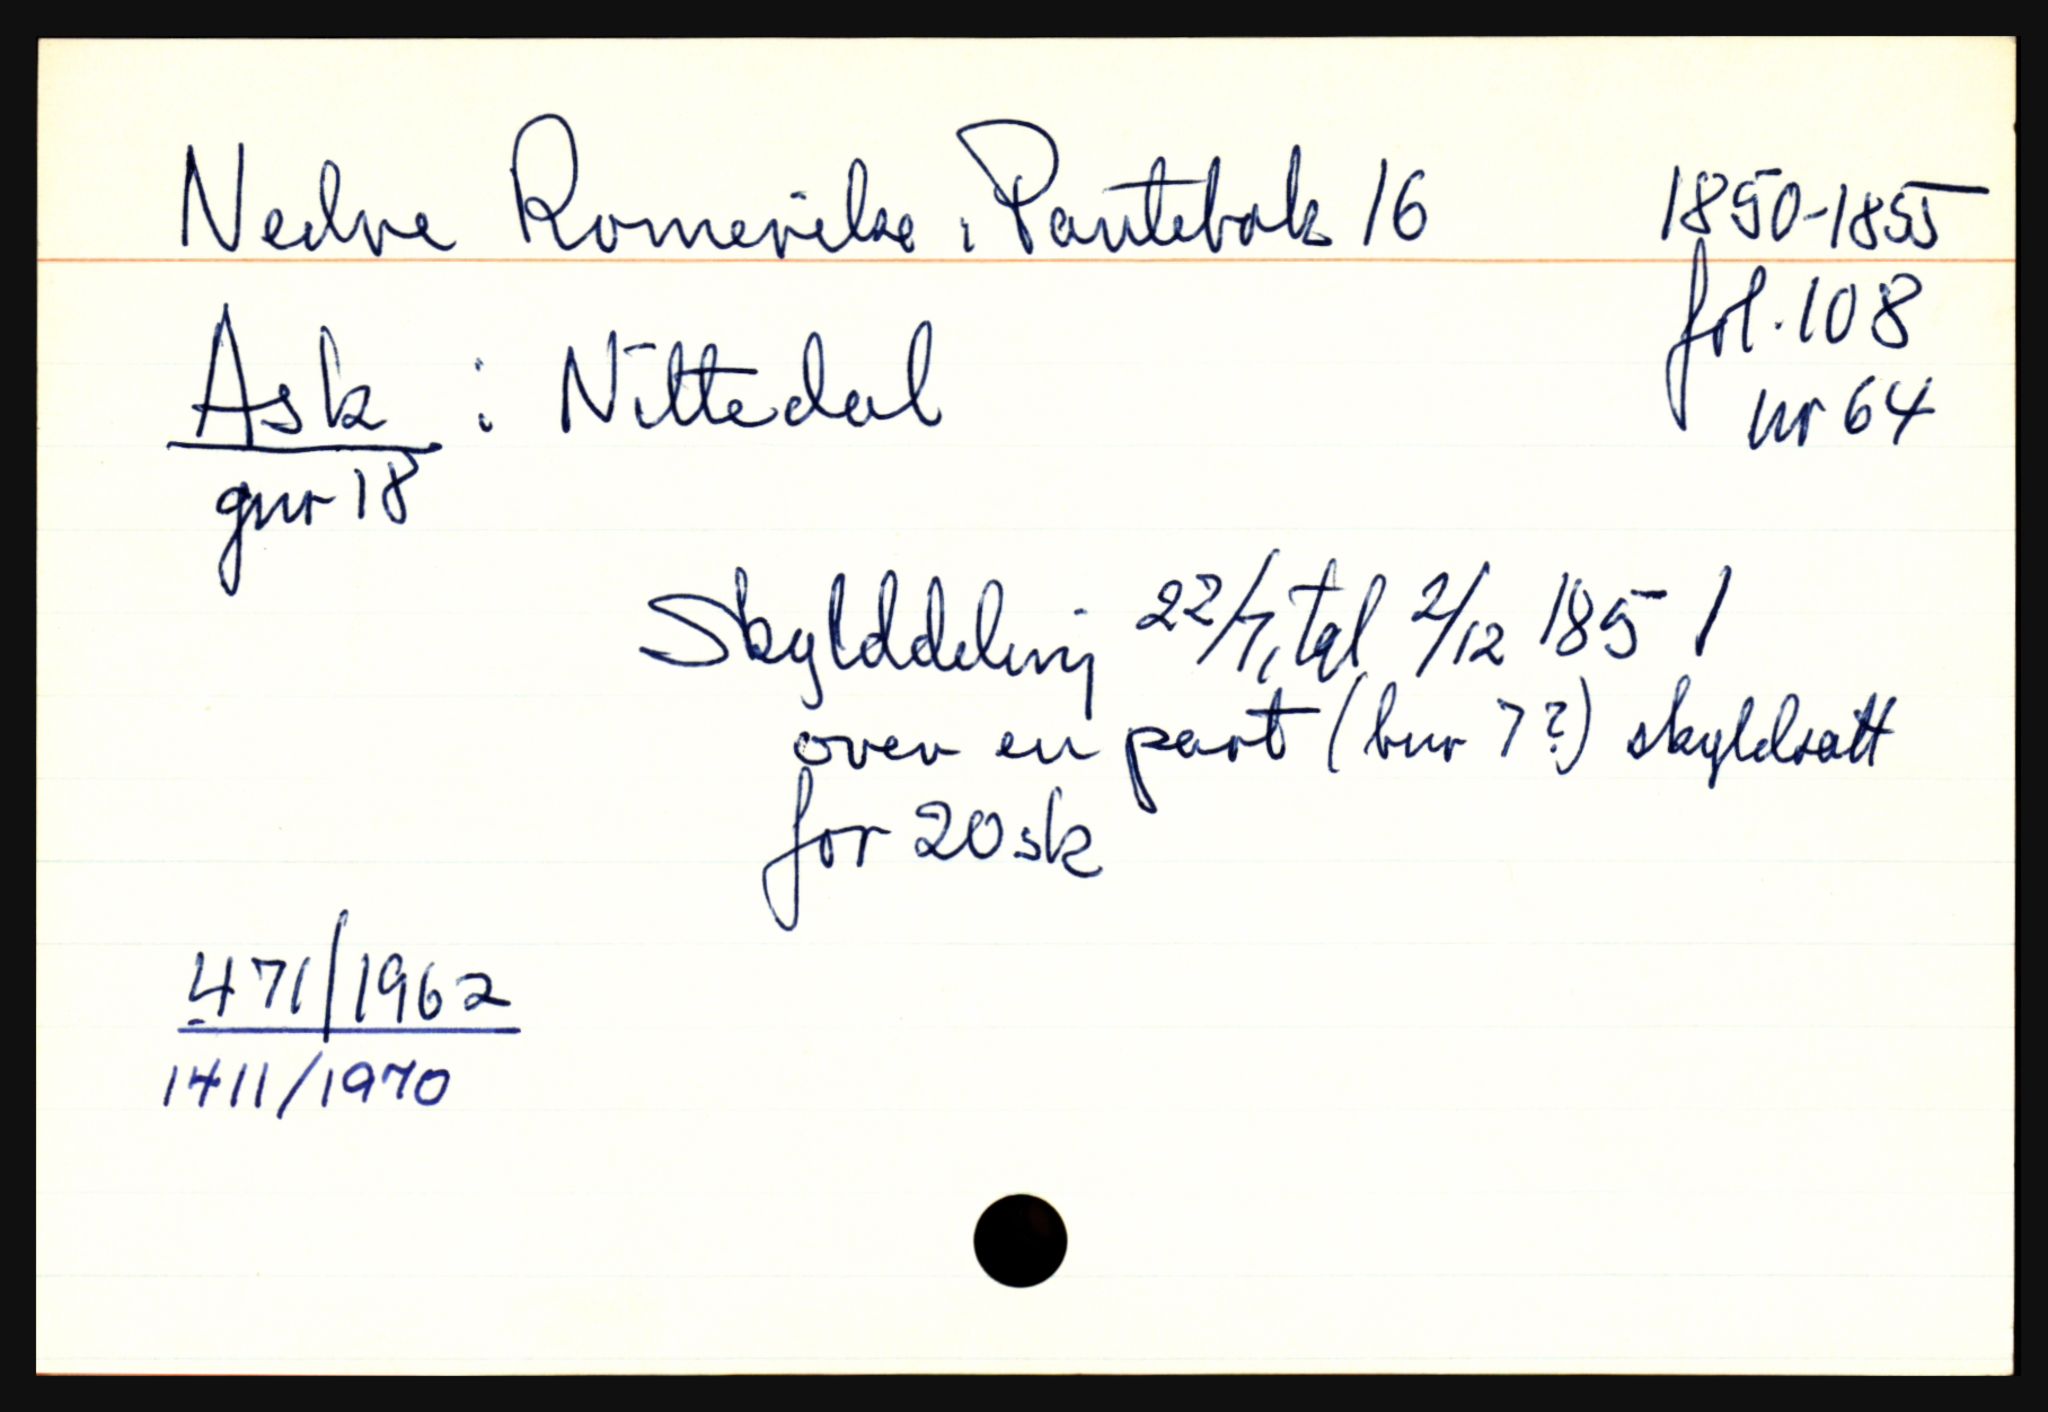 Nedre Romerike: Pantebok 16 1850-1855
fol. 108
Ask : Nittedal nr 64
gnr 18
Skylddeling 22/7, tgl 2/12 1851
over en part (bnr 7?) skyldsatt
for 20 sk
471/1962
1411/1970